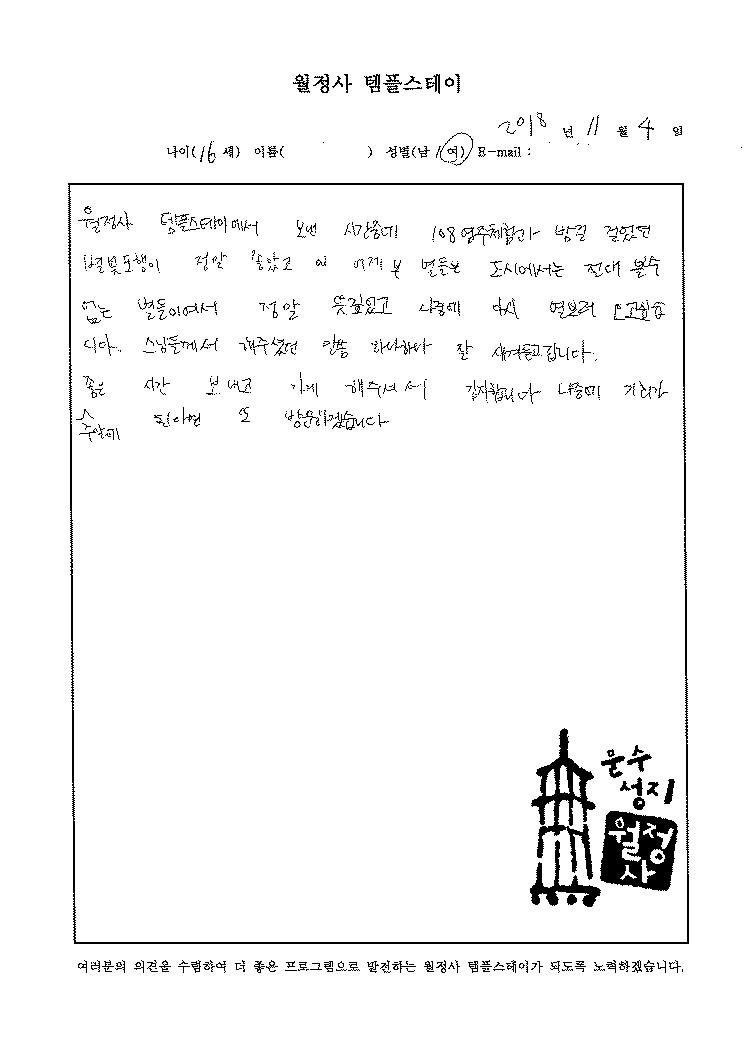 월정사 템플스테이
2018 년 11 월 4 일
나이(16 세) 이름( ) 성별(남 / 여) E-mail :
월정사 템플스테이에서 보낸 시간중에 108염주체험과 밤길 걸었던
별빛도행이 정말 좋았고 어제 본 별들은 도시에서는 전대 볼수
없는 별들이여서 정말 뜻깊었고 나중에 다시 오고싶습
니다. 스님들께서 해주셨던 말씀 하나하나 잘 새겨듣고갑니다.
좋은 시간 보내고 가게 해주셔서 감사합니다 나중에 기회가
주어지게 된다면 또 방문하겠습니다
문수
성지
월정
사
여러분의 의견을 수렴하여 더 좋은 프로그램으로 발전하는 월정사 템플스테이가 되도록 노력하겠습니다.